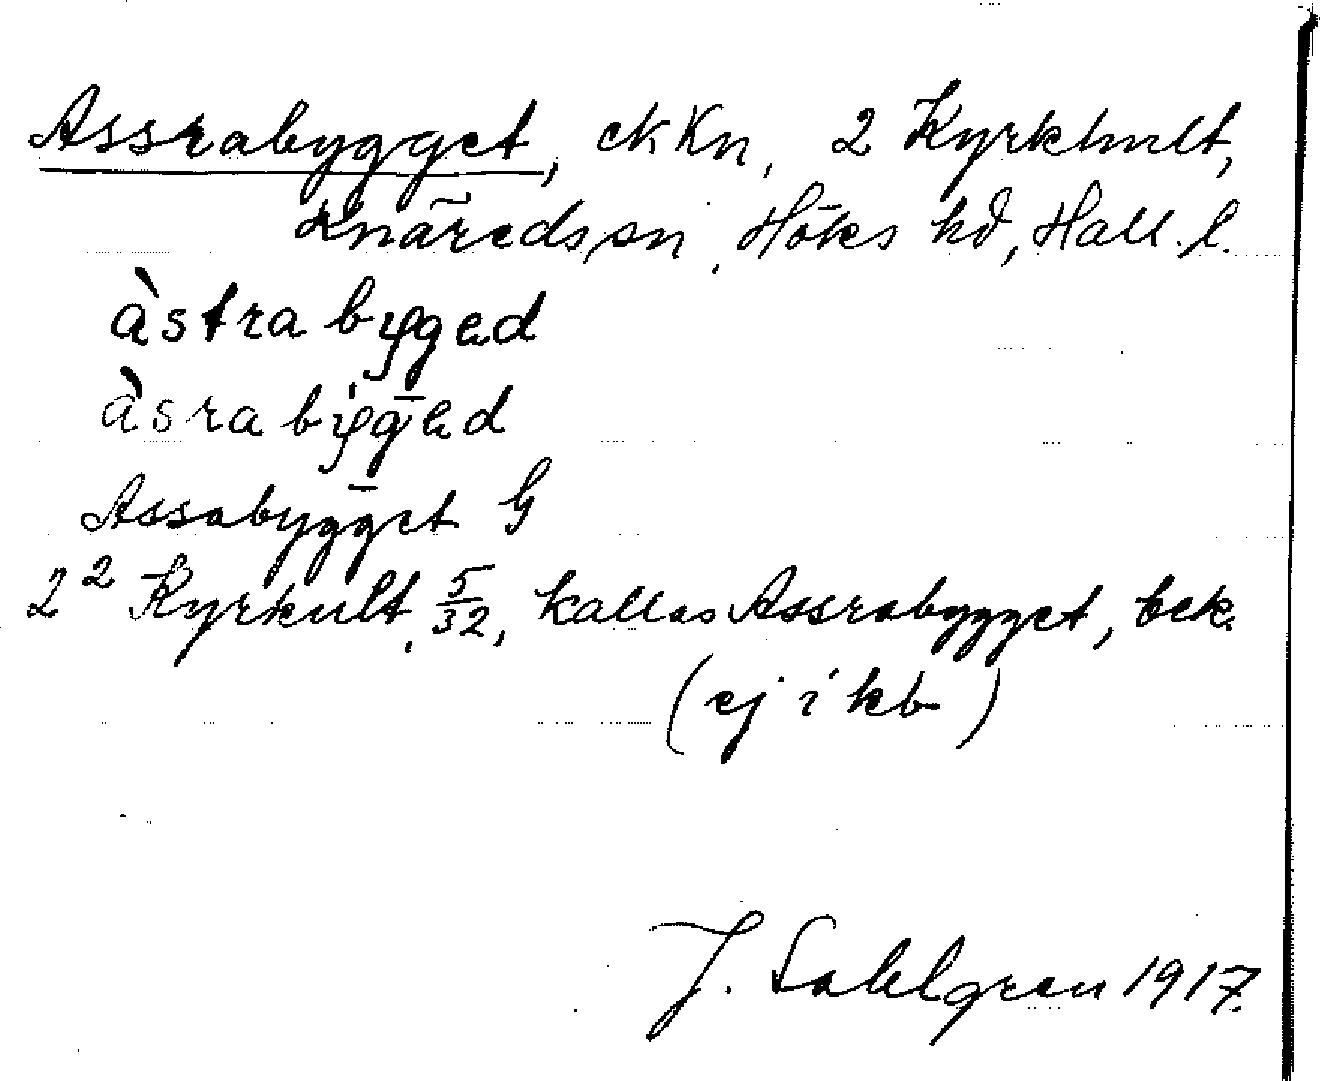 Assrabygget, ekKn, 2 Kyrkhult,
Knäreds sn, Höks hd, Hall. l.
àstrabyged
àsrabyged
Assabygget G
2² Kyrkult, 5/32, kallas Assrabygget, bek.
(ej i kb)
J. Sahlgren 1917.